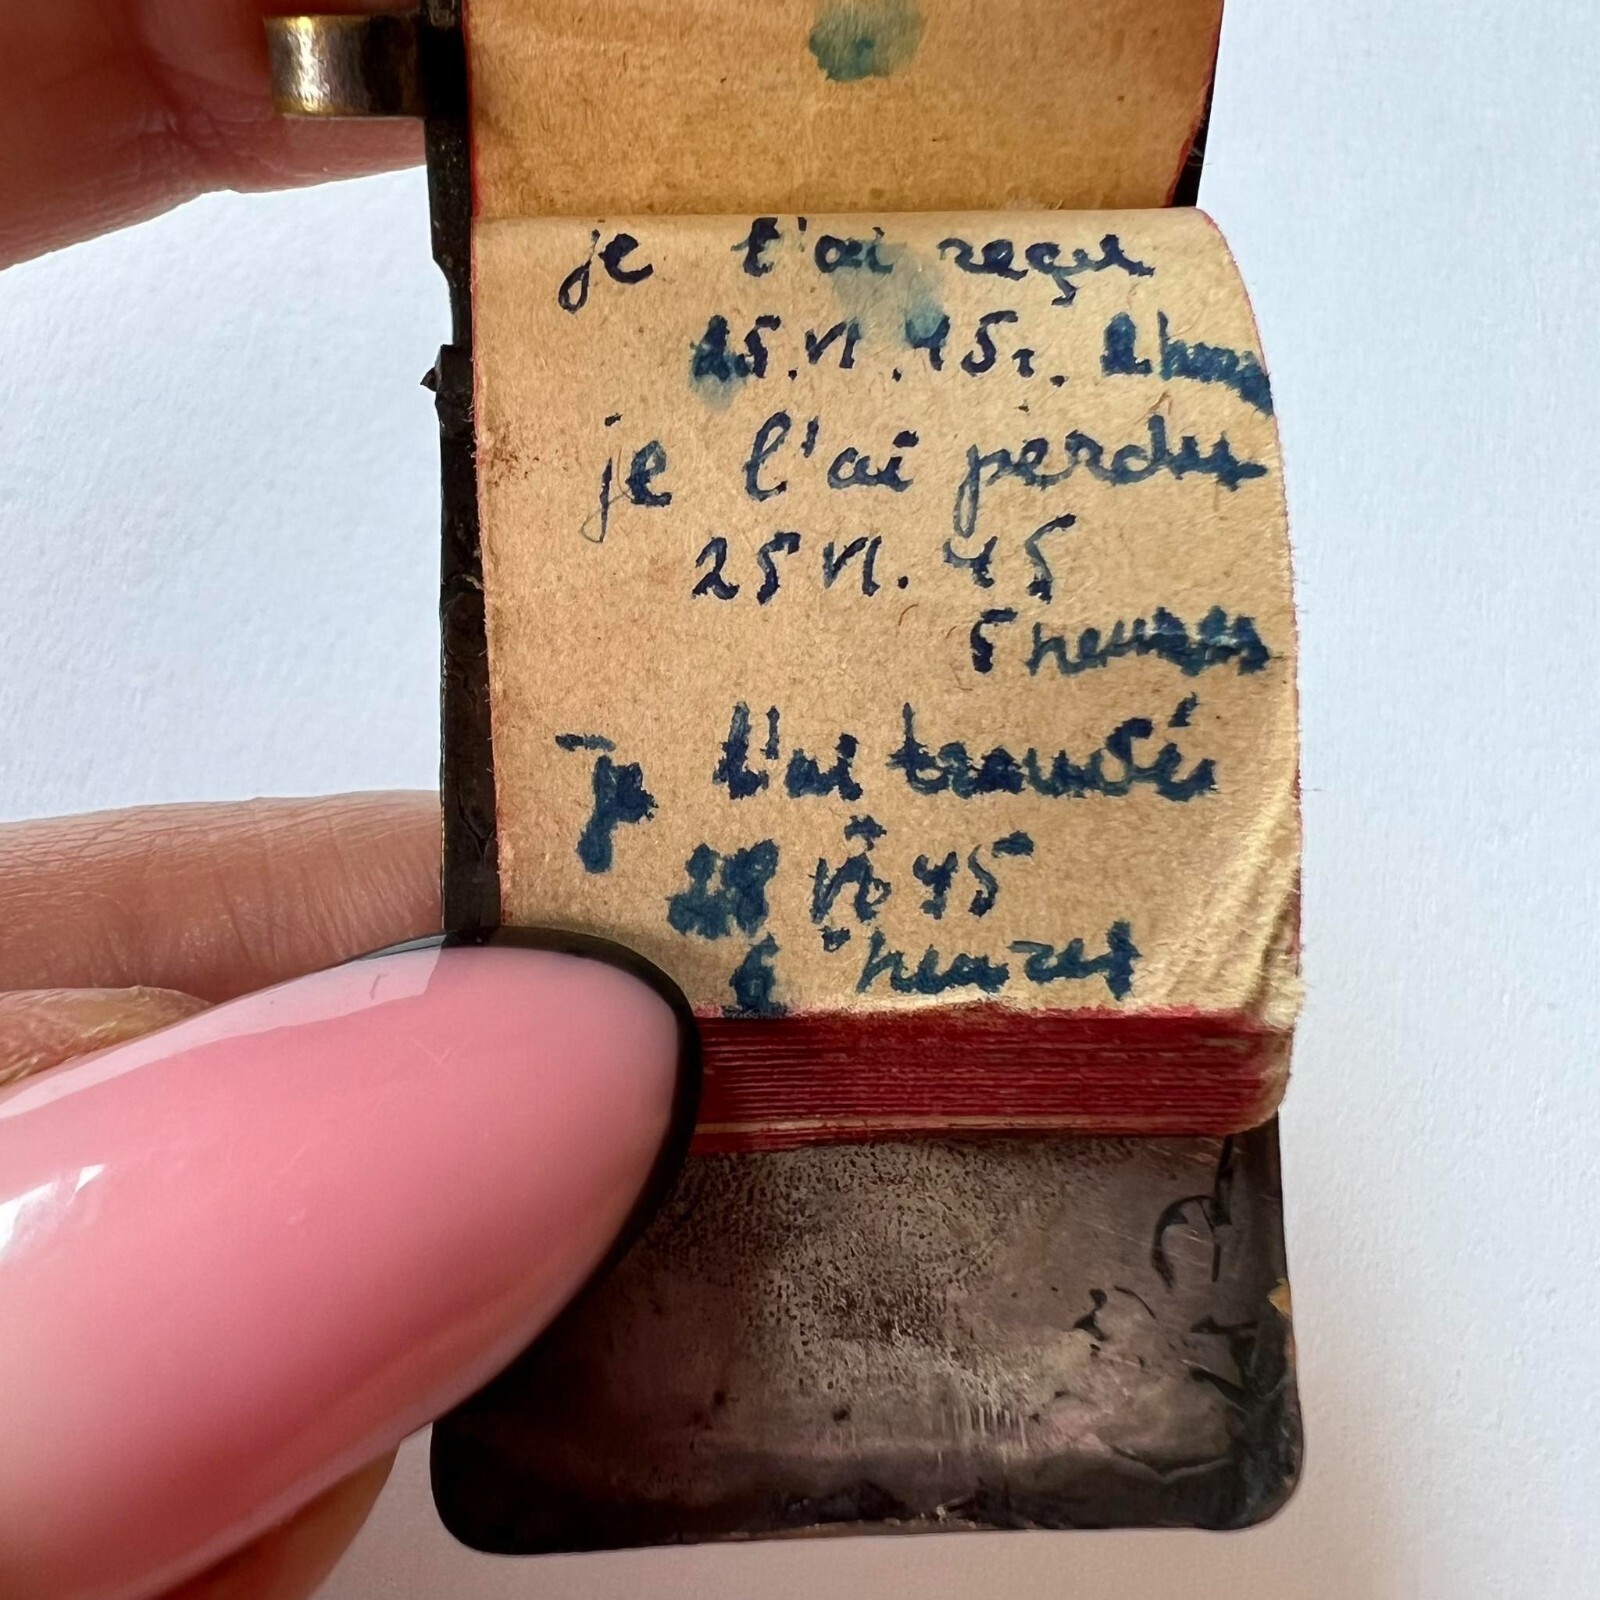 je l'ai reçu
25.VI.45r. 2 heures
je l'ai perdu
25 VI. 45
5 heures
Je l'ai trouvée
28 VI 45
6 heures